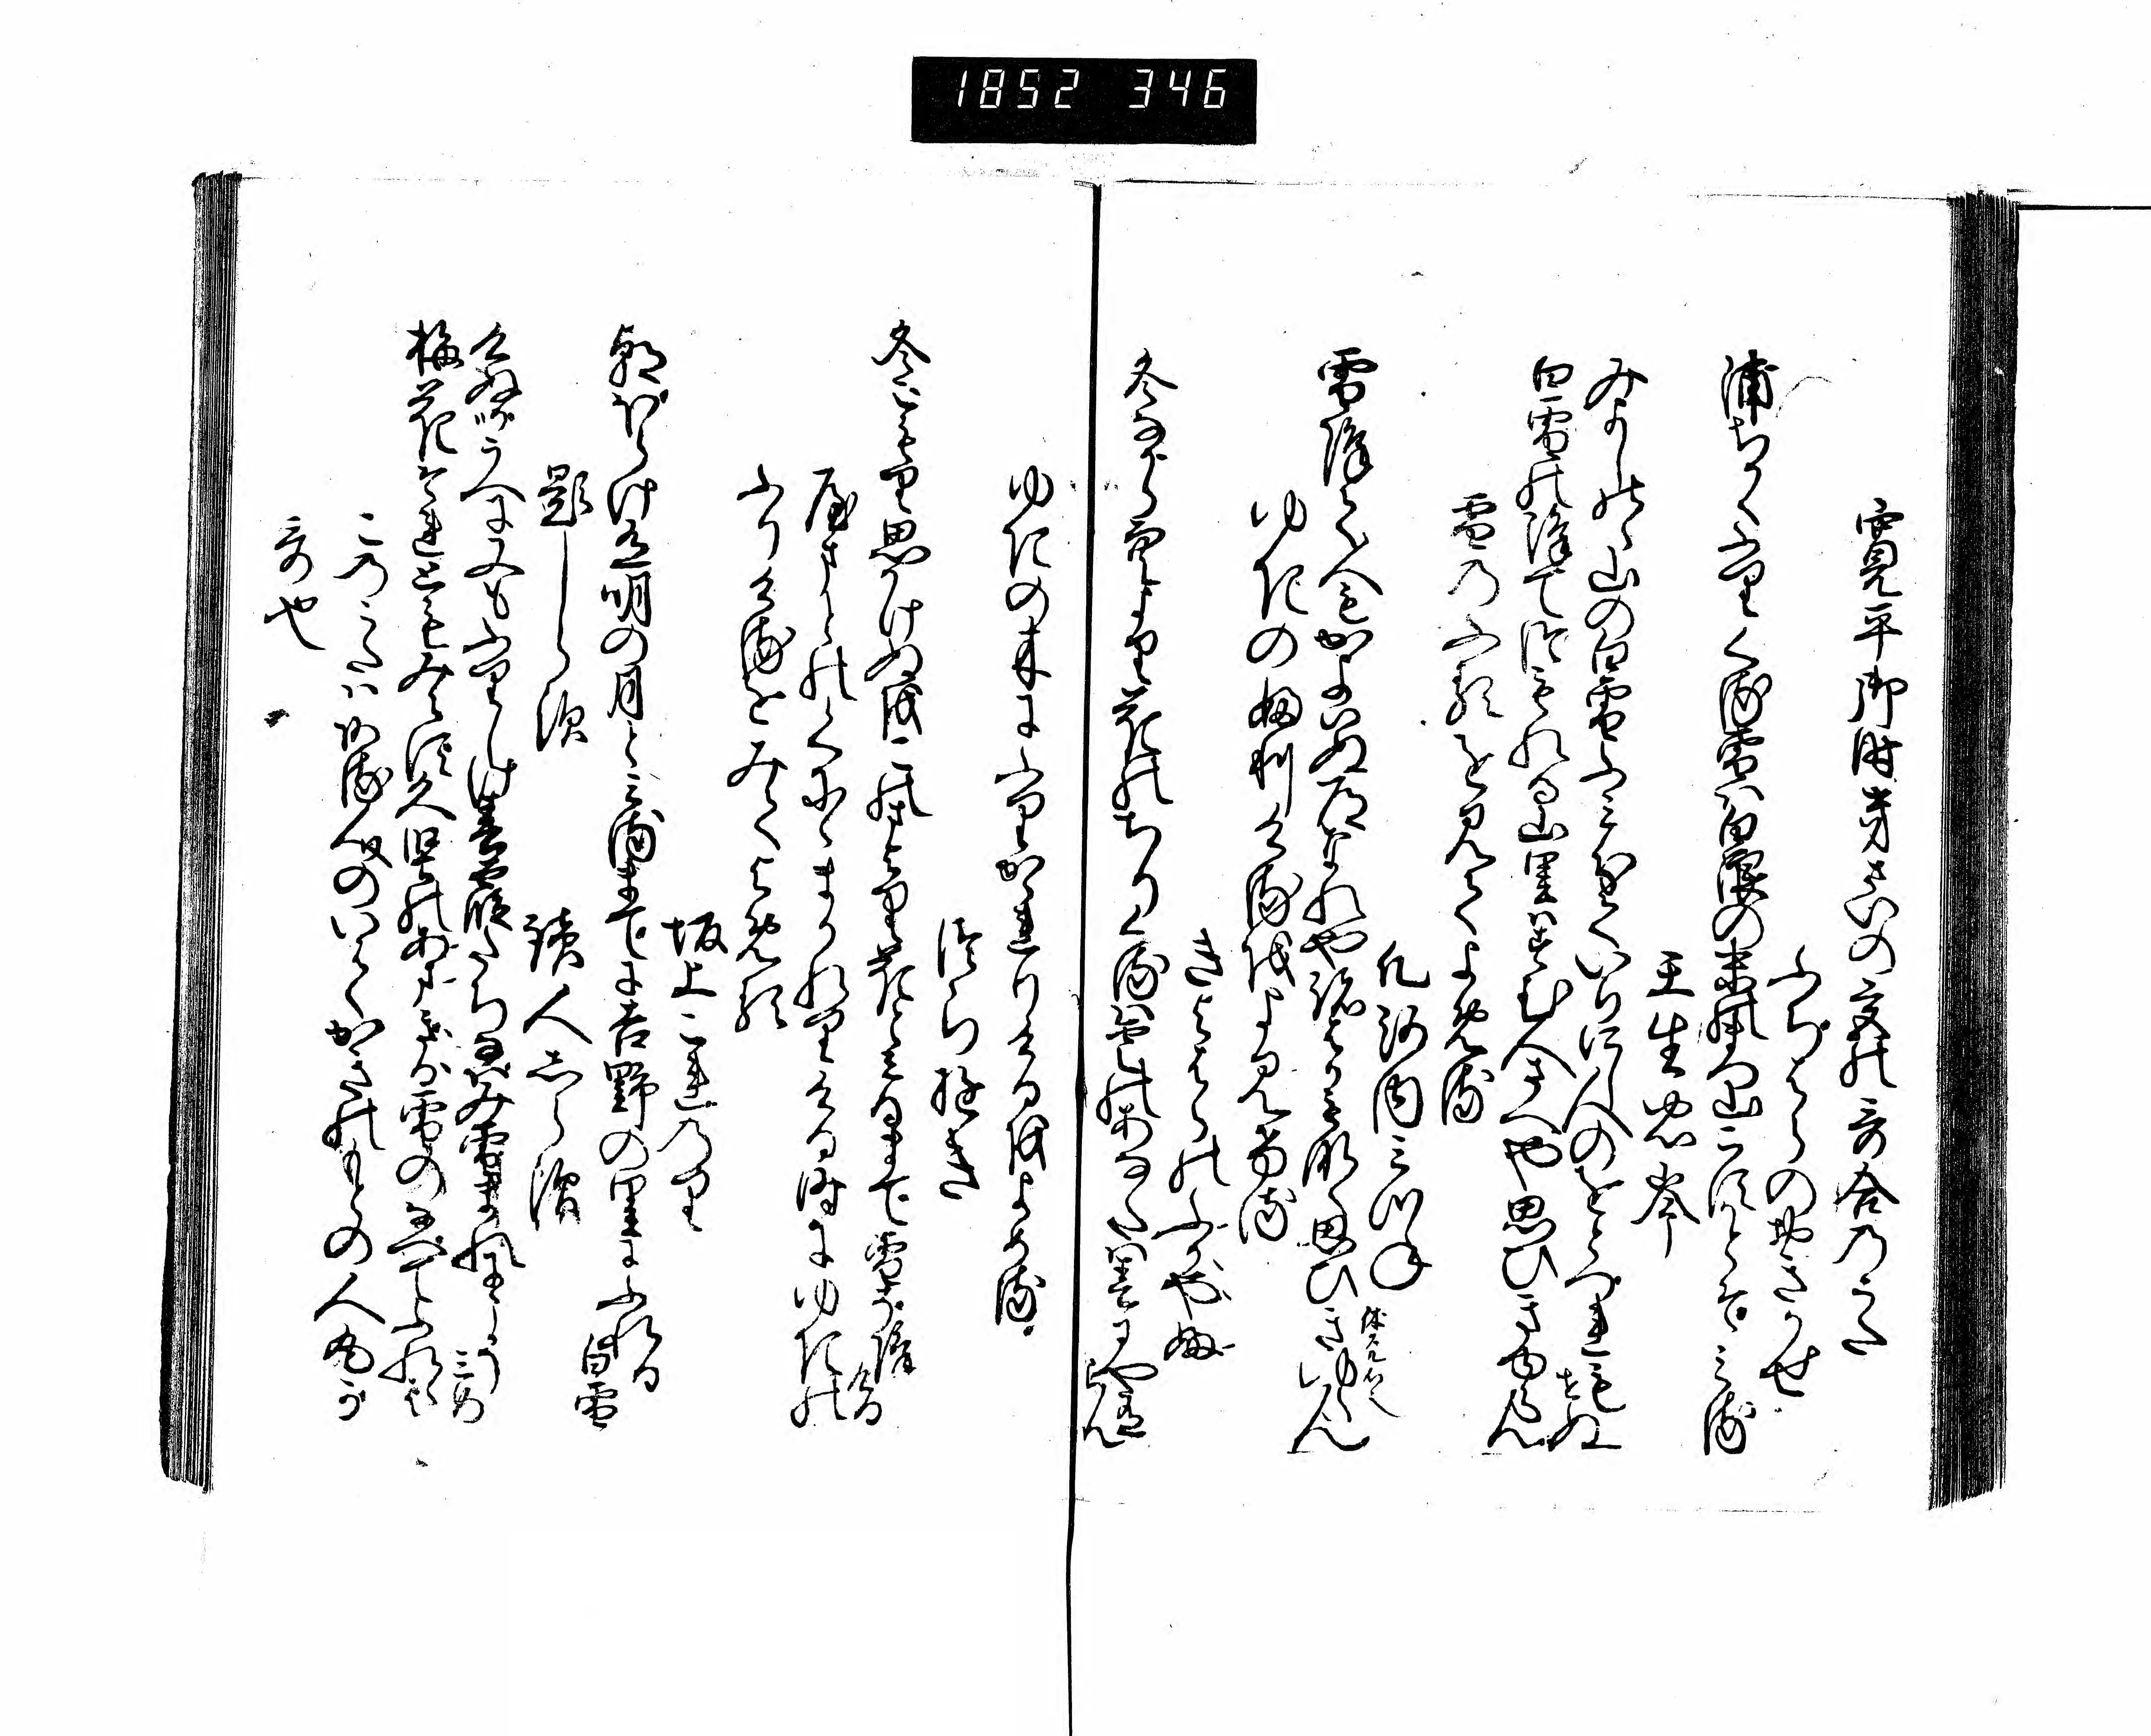 1852 346
寛平御時きさいの宮の哥合のうた
ふぢはらのおきかせ
浦ちかくふりくる雪は白浪の末の松山こすかとそみる
壬生忠岑
みよしのゝ山の白雪ふみ分ていりにし人のをとつれもせぬ
白雪の降てつもれる山里はすむ人さへや思ひきゆらん
雪のふるを見てよめる
凡河内みつね
雪降て人もかよはぬ道なれや跡はかもなく思ひきゆらん
ゆきのふりけるをよみける
きよはらのふかやふ
冬なから空より花のちりくるは雲のあなたは春にやあるらん
ゆきの木にふりかゝれりけるをよめる
つらゆき
冬こもり思ひかけぬをこのまより花とみるまて雪そ降ける
やまとのくにゝまかれりける時にゆきの
ふりけるをみてよめる
坂上これのり
朝ぼらけ有明の月とみるまでに吉野の里にふれる白雪
題しらす 読人しらす
けぬがうへに又もふりしけ春霞たちなばみ雪まれにこそみめ
梅花それともみえす久堅のあまぎる雪のなべてふれゝば
このうたはある人のいはくかきのもとの人丸が
哥也